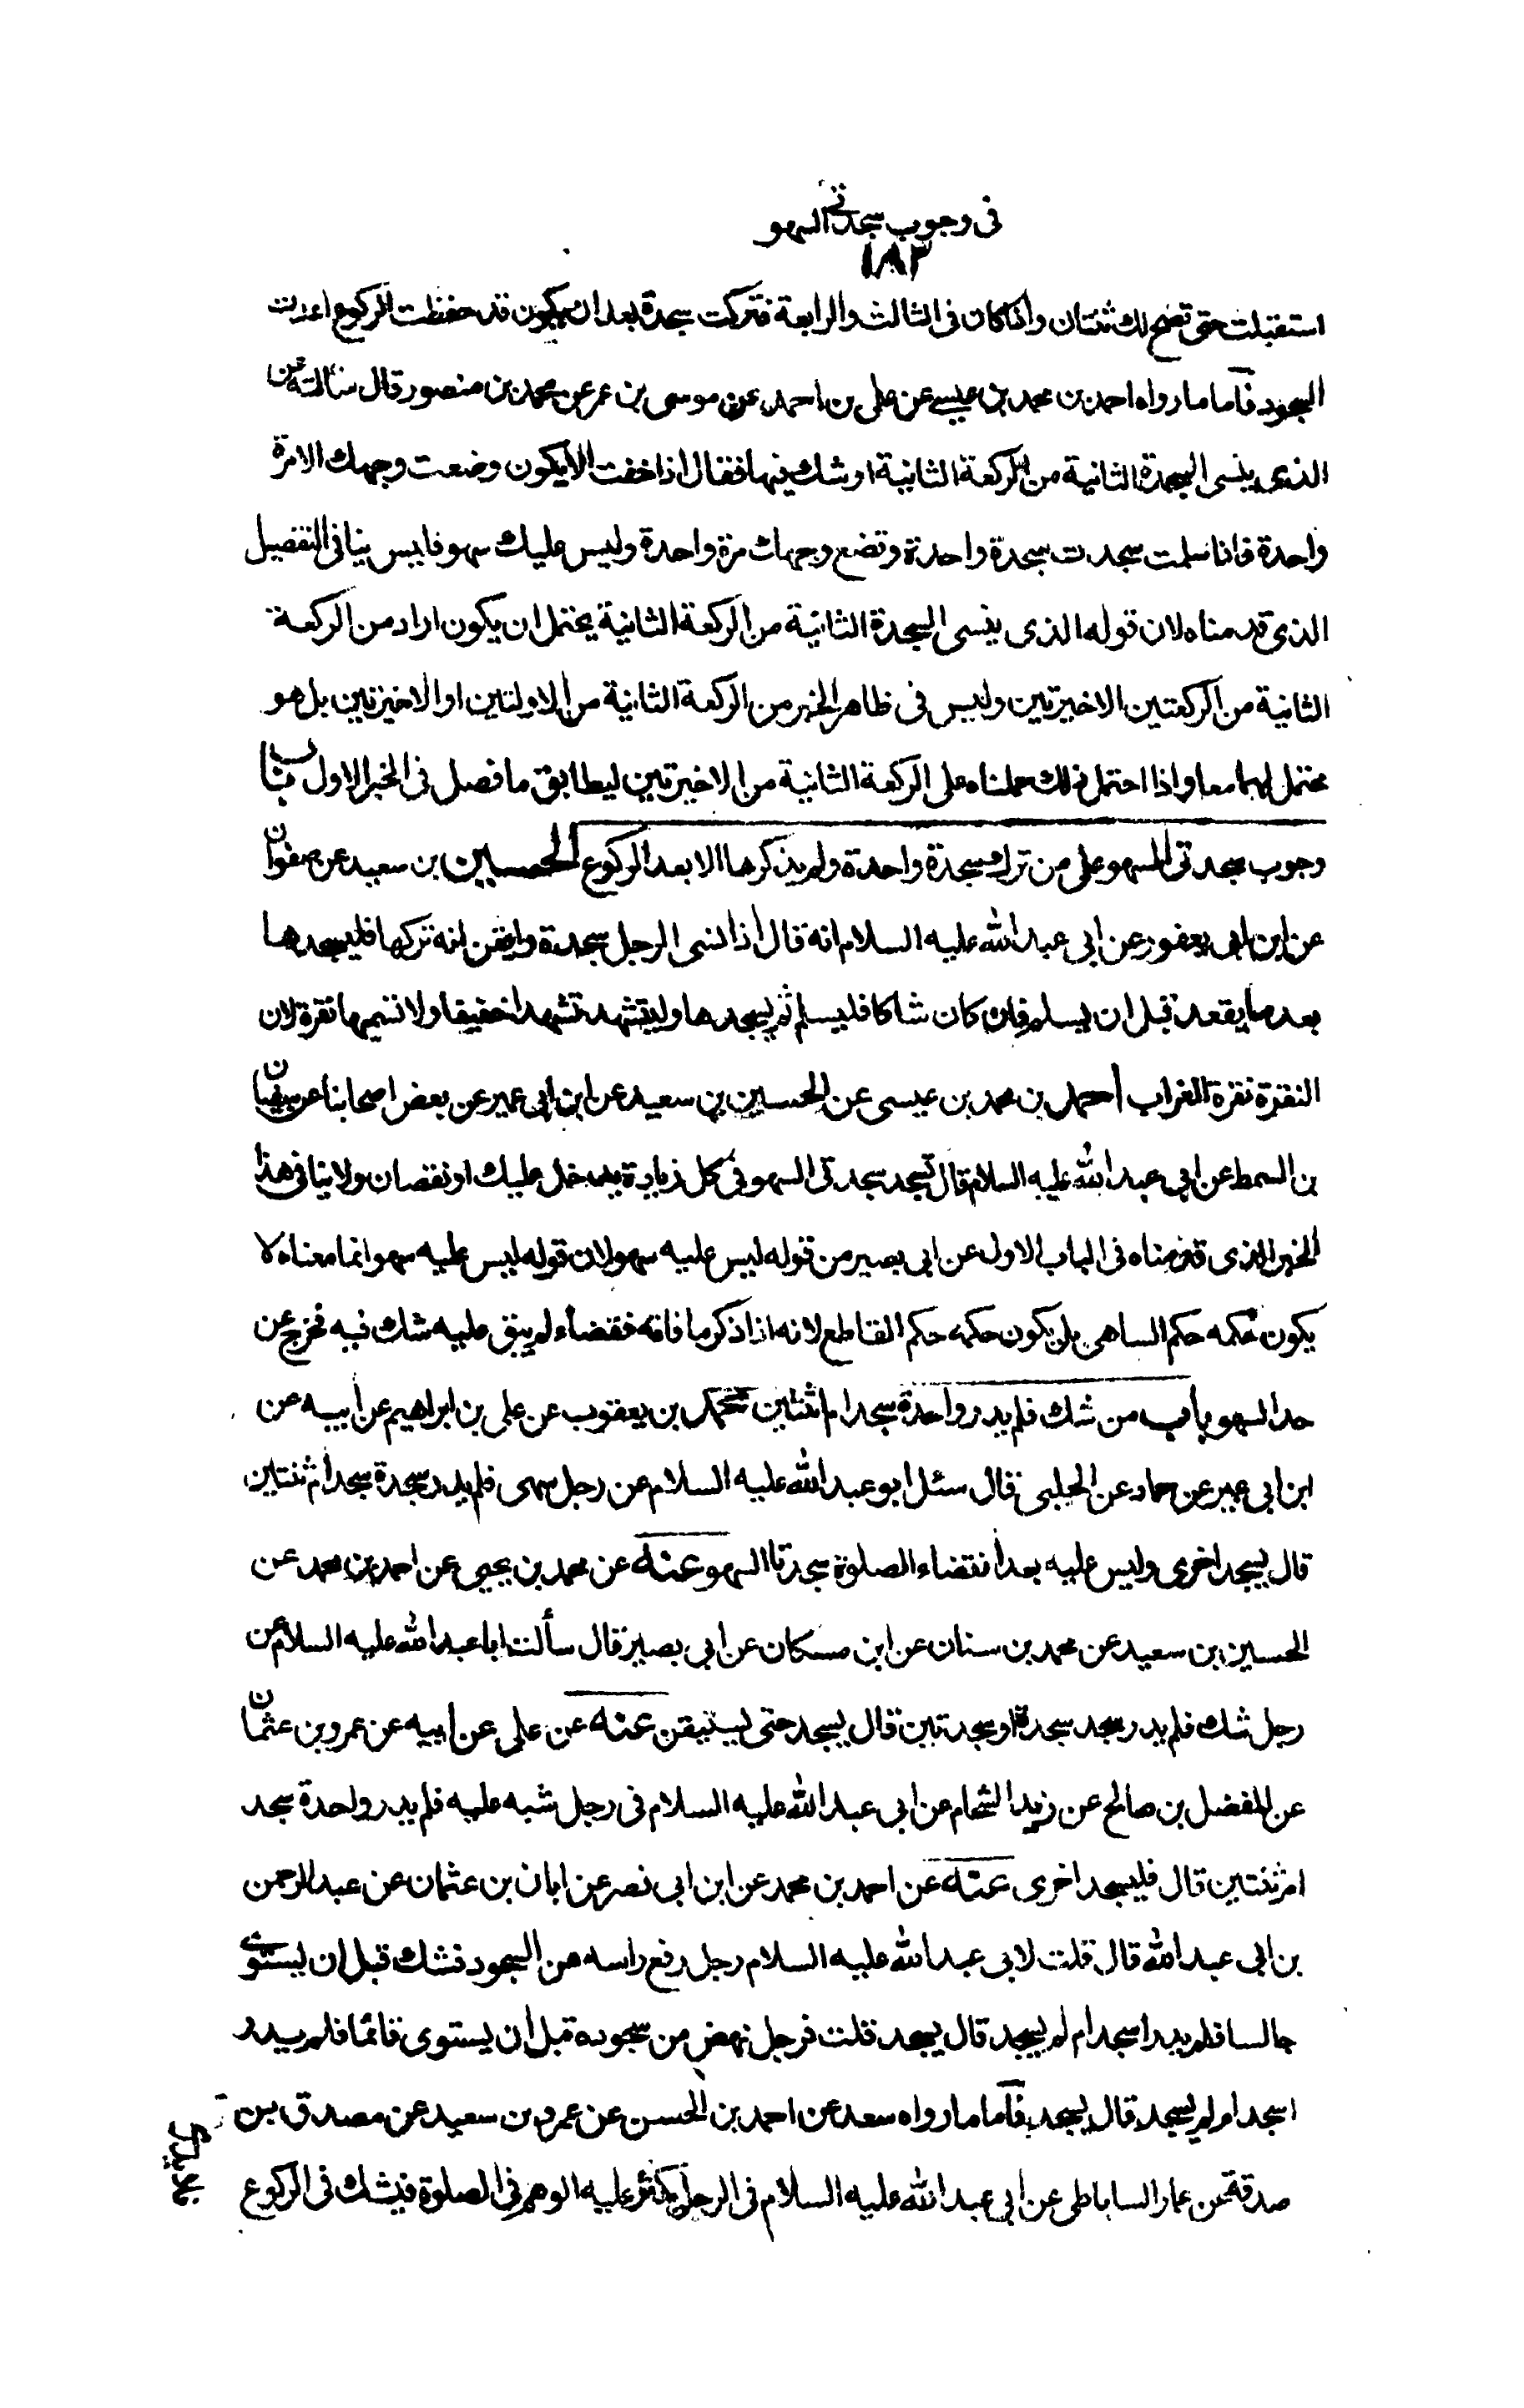 فى وجوب سجدتى السهو
١٨٣
استقبلت حتى تصح لك ثنتان واذا كان فى الثالث والرابعة فتركت سجدة بعد ان تكون قد حفظت الركوع اعدت
السجود فاما ما رواه احمد بن محمد بن عيسى عن على بن احمد عن موسى بن عمر عن محمد بن منصور قال سئالته عن
الذى ينسى السجدة الثانية من الركعة الثانية او شك فيها فقال اذا خفت الا يكون وضعت وجهك الا مرة
واحدة فاذا سلمت سجدت سجدة واحدة وتضع وجهك مرة واحدة وليس عليك سهو فليس ينافى التفصيل
الذى قدمناه لان قوله الذى ينسى السجدة الثانية من الركعة الثانية يحتمل ان يكون اراد من الركعة
الثانية من الركعتين الاخيرتين وليس فى ظاهر الخبر من الركعة الثانية من الاولتين او الاخيرتين بل هو
محتمل لهما معا واذا احتمل ذلك حملناه على الركعة الثانية من الاخيرتين ليطابق ما فصل فى الخبر الاول باب
وجوب سجدتى السهو على من ترك سجدة واحدة ولم يذكرها الا بعد الركوع الحسين بن سعيد عن صفوان
عن ابن ابى يعفور عن ابى عبد الله عليه السلام انه قال اذا نسى الرجل سجدة وايقن انه تركها فليسجدها
بعد ما يقعد قبل ان يسلم فان كان شاكا فليسلم ثم يسجدها وليتشهد تشهدا خفيفا ولا تسميها نقرة لان
النقرة نقرة الغراب احمد بن محمد بن عيسى عن الحسين بن سعيد عن ابن ابى عمير عن بعض اصحابنا عن سفيان
بن السمط عن ابى عبد الله عليه السلام قال تسجد سجدتى السهو فى كل زيادة يدخل عليك او نقصان ولا ينافى هذا
الخبر الذى قدمناه فى الباب الاول عن ابى بصير من قوله ليس عليه سهو لان قوله ليس عليه سهو انما معناه لا
يكون حكمه حكم الساهى بل يكون حكمه حكم القاطع لانه اذا ذكر ما فاته فقضاء لم يبق عليه شك فيه فخرج عن
حد السهو باب من شك فلم يدر واحدة سجد ام اثنتين محمد بن يعقوب عن على بن ابراهيم عن ابيه عن
ابن ابى عمير عن حماد عن الحلبى قال سئل ابو عبد الله عليه السلام عن رجل سهى فلم يدر سجدة سجد ام ثنتين
قال يسجد اخرى وليس عليه بعد انقضاء الصلوة سجدتا السهو عنه عن محمد بن يحيى عن احمد بن محمد عن
الحسين بن سعيد عن محمد بن سنان عن ابن مسكان عن ابى بصير قال سألت ابا عبد الله عليه السلام عن
رجل شك فلم يدر سجد سجدة او سجدتين قال يسجد حتى يستيقن عنه عن على عن ابيه عن عمرو بن عثمان
عن المفضل بن صالح عن زيد الشحام عن ابى عبد الله عليه السلام فى رجل شبه عليه فلم يدر واحدة سجد
ام ثنتين قال فليسجد اخرى عنه عن احمد بن محمد عن ابن ابى نصر عن ابان بن عثمان عن عبد الرحمن
بن ابى عبد الله قال قلت لابى عبد الله عليه السلام رجل رفع راسه من السجود فشك قبل ان يستوى
جالسا فلم يدر اسجد ام لم يسجد قال يسجد قلت فرجل نهض من سجوده قبل ان يستوى قائما فلم يدر
اسجد ام لم يسجد قال يسجد فاما ما رواه سعد عن احمد بن الحسن عن عمرو بن سعيد عن مصدق بن
صدقة عن عمار الساباطى عن ابى عبد الله عليه السلام فى الرجل يكثر عليه الوهم فى الصلوة فيشك فى الركوع
فلا يدرى